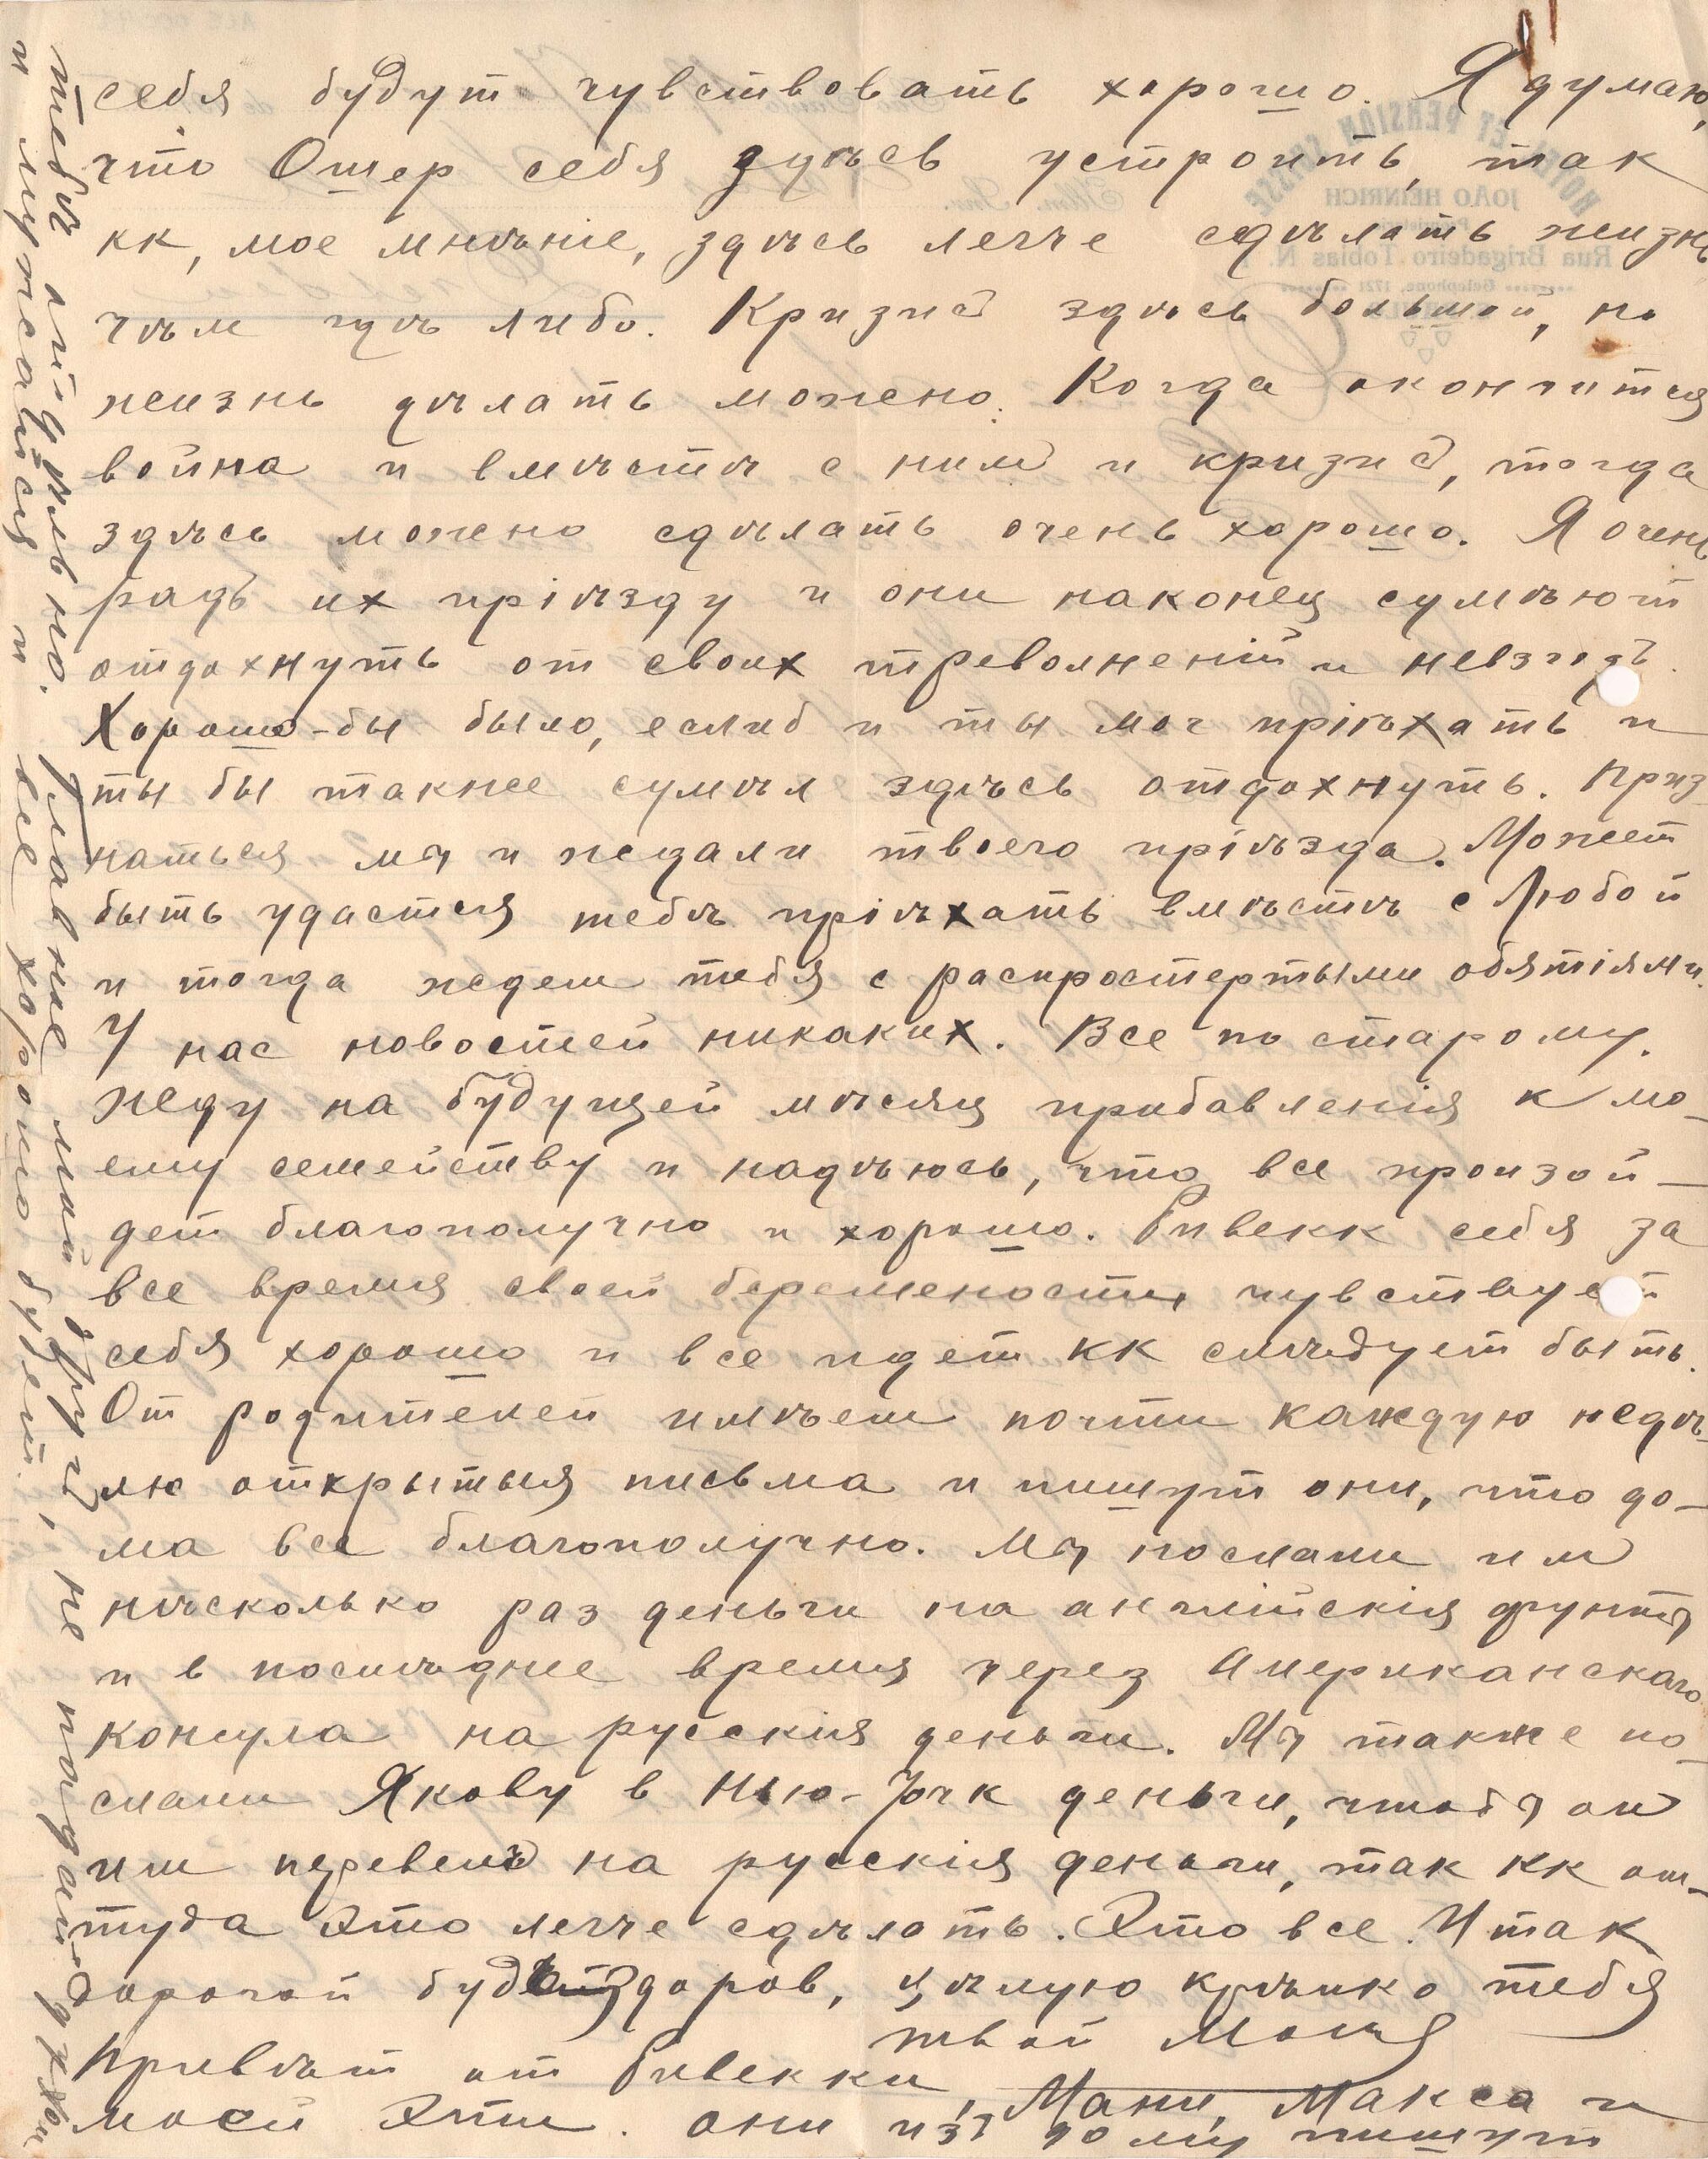 себя будут чувствовать хорошо. Я думаю,
что Ошер себя здѣсь устроить, так
кк, мое мнѣніе, здѣсь легче сдѣлать жизнь
чѣм гдѣ либо. Кризис здѣсь большой, но
жизнь дѣлать можно. Когда окончится
война и вмѣстѣ с ним и кризис, тогда
здѣсь можно сдѣлать очень хорошо. Я очень
радъ их пріѣзду и они наконец сумѣют
отдохнуть от своих треволненій и невзгодъ.
Хорошо-бы было, еслиб и ты мог пріѣхать и
ты бы также сумѣл здѣсь отдохнуть. Приз-
наться мы и ждали твоего пріѣзда. Может
быть удастся тебѣ пріѣхать вмѣстѣ с Любой
и тогда ждем тебя с распростертыми обятіями.
У нас новостей никаких. Все по старому.
Жду на будущей мѣсяц прибавленія к мо-
ему семейству и надѣюсь, что все произой-
дет благополучно и хорошо. Ривекк себя за
все время своей беремености чувствует
себя хорошо и все идет кк слѣдует быть.
От родителей имѣем почти каждую недѣ-
лю открытыя письма и пишут они, что до-
ма все благополучно. Мы послали им
нѣсколько раз деньги на англійскія фунты
и в послѣдние время через Американскаго
консула на русскія деньги. Мы также по-
слали Якову в Нью-Йорк деньги, чтобы он
им перевелъ на русскія деньги, так кк от-
туда это легче сдѣлать. Это все. Итак
дорогой будь здоров, цѣлую крѣпко тебя
твой Мося
Привѣт от Ривекки, Мани, Макса и
моей Эти. они изъ дому пишут
тебѣ отдѣльно. Главное мой друг, не падай духом
и мужайся и все хорошо будет.
HOTEL ET PENSION SUISSE
JOÃO HEINRICH
Rua Brigadeiro Tobias N.
Telephone, 1721